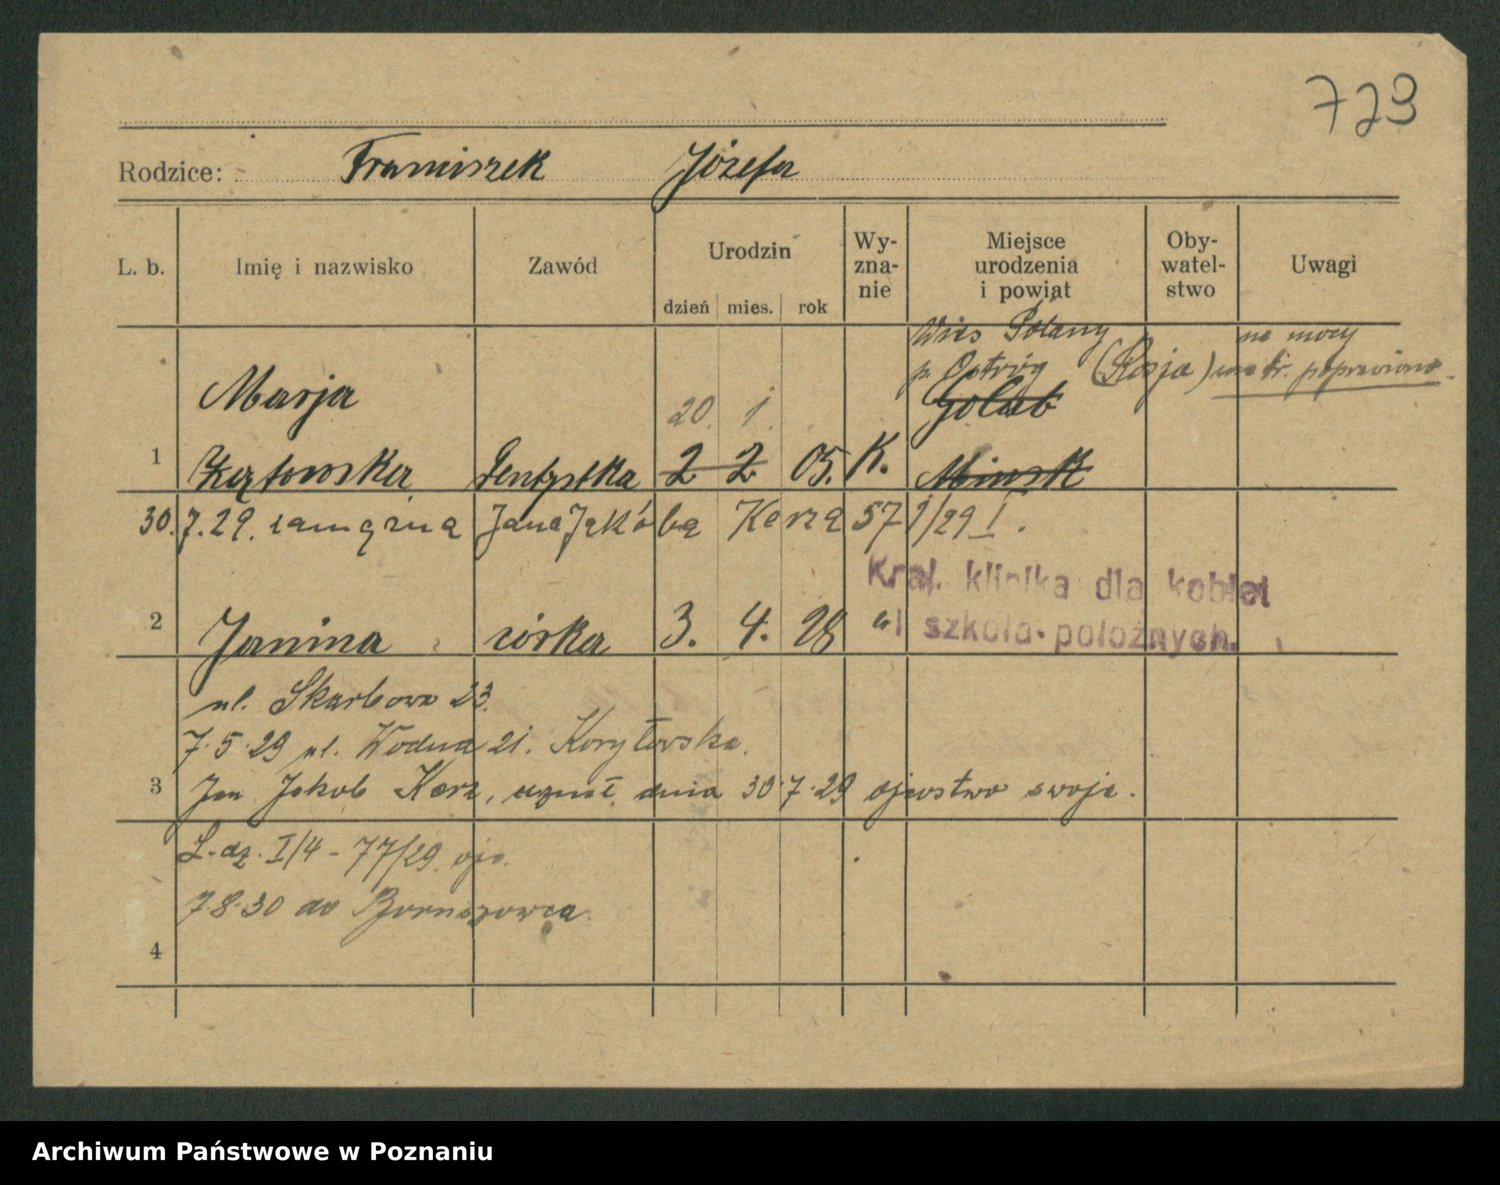 723
Rodzice: Franciszek Józefa
L. b. Imię i nazwisko Zawód Urodzin Wy-zna-nie Miejsce urodzenia i powiat Oby-watel-stwo Uwagi
dzień mies. rok
Wieś Polany na mocy
p. Ostróg (Rosja) metr. poprawiono
Marja 20. 1. Goląb
1 dentystka 2 2 05. K. Minsk
30.7.29. zamężna Jana Jakóba Kerza 571/29 I.
Kraj. klinika dla kobiet
2 Janina córka 3. 4. 28 " i szkoła położnych.
ul. Skarbowa 23.
7.5.29 ul. Wodna 21. Korytowska.
3 Jan Jakob Kerz, uznał dnia 30.7.29 ojcostwo swoje.
L. dz. I/4 - 77/29 ojc.
7.8.30 do
4
Archiwum Państwowe w Poznaniu